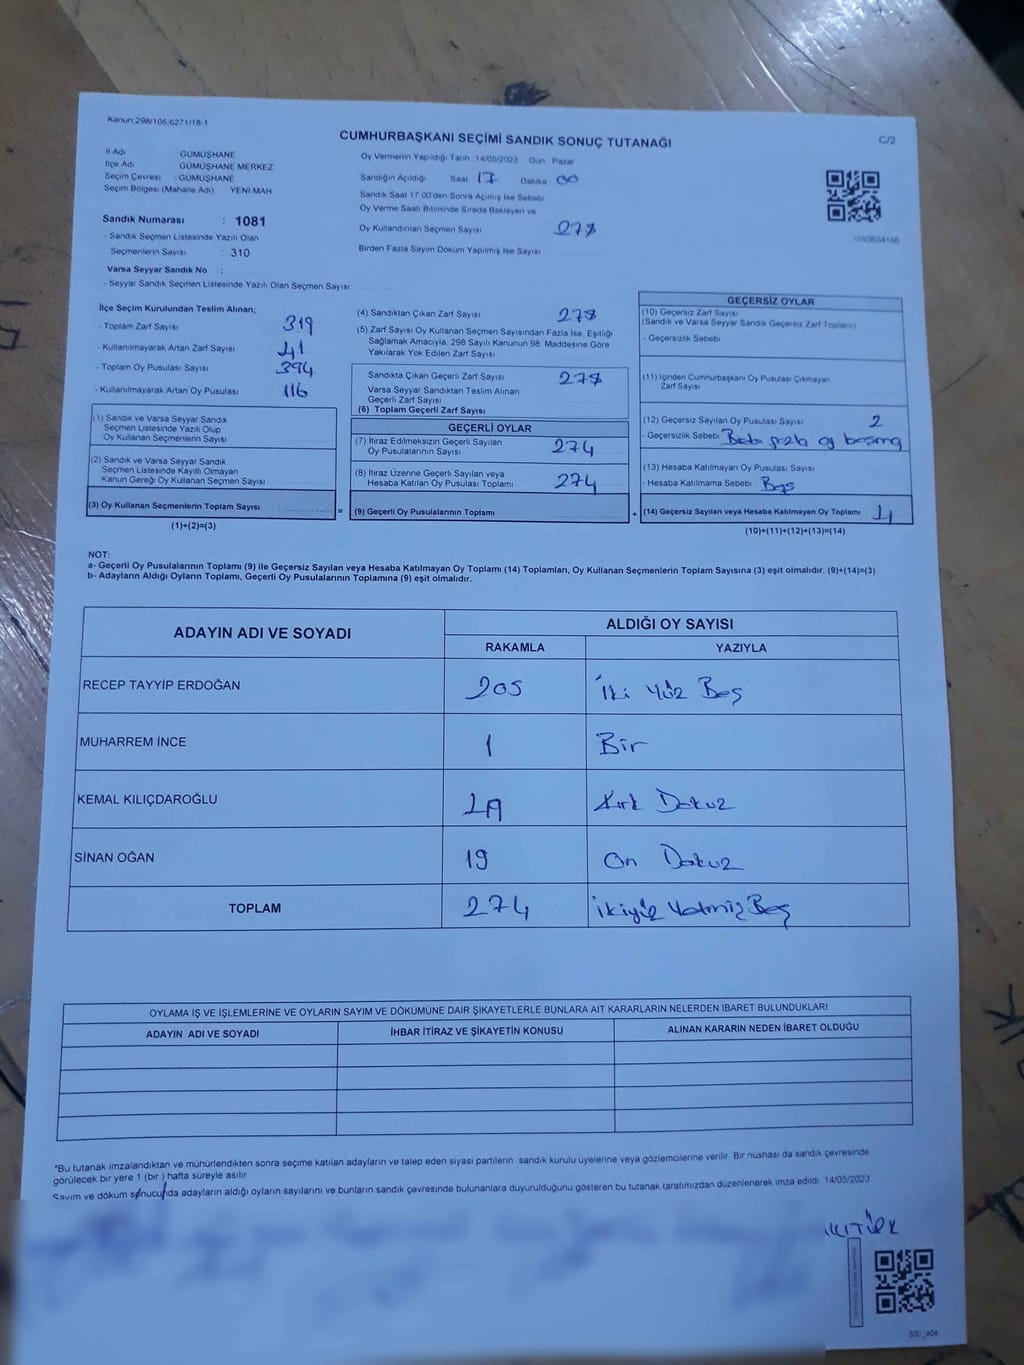 Kanun:298/105,6271/18-1
CUMHURBAŞKANI SEÇİMİ SANDIK SONUÇ TUTANAĞI
C/2
İl Adı GÜMÜŞHANE
İlçe Adı GÜMÜŞHANE MERKEZ
Seçim Çevresi : GÜMÜŞHANE
Seçim Bölgesi (Mahalle Adı) YENİ MAH
Sandık Numarası : 1081
- Sandık Seçmen Listesinde Yazılı Olan
Seçmenlerin Sayısı : 310
Varsa Seyyar Sandık No :
- Seyyar Sandık Seçmen Listesinde Yazılı Olan Seçmen Sayısı
Oy Vermenin Yapıldığı Tarih 14/05/2023 Gün Pazar
Sandığın Açıldığı Saat 17 Dakika 00
Sandık Saat 17.00'den Sonra Açılmış İse Sebebi
Oy Verme Saati Bitiminde Sırada Bekleyen ve
Oy Kullandırılan Seçmen Sayısı 278
Birden Fazla Sayım Döküm Yapılmış İse Sayısı
1093634166
İlçe Seçim Kurulundan Teslim Alınan;
- Toplam Zarf Sayısı 319
- Kullanılmayarak Artan Zarf Sayısı 41
- Toplam Oy Pusulası Sayısı 394
- Kullanılmayarak Artan Oy Pusulası 116
(1) Sandık ve Varsa Seyyar Sandık
Seçmen Listesinde Yazılı Olup
Oy Kullanan Seçmenlerin Sayısı
(2) Sandık ve Varsa Seyyar Sandık
Seçmen Listesinde Kayıtlı Olmayan
Kanun Gereği Oy Kullanan Seçmen Sayısı
(3) Oy Kullanan Seçmenlerin Toplam Sayısı
(1)+(2)=(3)
=
(4) Sandıktan Çıkan Zarf Sayısı 278
(5) Zarf Sayısı Oy Kullanan Seçmen Sayısından Fazla İse, Eşitliği
Sağlamak Amacıyla; 298 Sayılı Kanunun 98. Maddesine Göre
Yakılarak Yok Edilen Zarf Sayısı
Sandıkta Çıkan Geçerli Zarf Sayısı 278
Varsa Seyyar Sandıktan Teslim Alınan
Geçerli Zarf Sayısı
(6) Toplam Geçerli Zarf Sayısı
GEÇERLİ OYLAR
(7) İtiraz Edilmeksizin Geçerli Sayılan
Oy Pusulalarının Sayısı 274
(8) İtiraz Üzerine Geçerli Sayılan veya
Hesaba Katılan Oy Pusulası Toplamı 274
(9) Geçerli Oy Pusulalarının Toplamı
+
GEÇERSİZ OYLAR
(10) Geçersiz Zarf Sayısı
(Sandık ve Varsa Seyyar Sandık Geçersiz Zarf Toplamı)
- Geçersizlik Sebebi
(11) İçinden Cumhurbaşkanı Oy Pusulası Çıkmayan
Zarf Sayısı
(12) Geçersiz Sayılan Oy Pusulası Sayısı 2
- Geçersizlik Sebebi fazla oy basma
(13) Hesaba Katılmayan Oy Pusulası Sayısı
- Hesaba Katılmama Sebebi Boş
(14) Geçersiz Sayılan veya Hesaba Katılmayan Oy Toplamı 4
(10)+(11)+(12)+(13)=(14)
NOT:
a- Geçerli Oy Pusulalarının Toplamı (9) ile Geçersiz Sayılan veya Hesaba Katılmayan Oy Toplamı (14) Toplamları, Oy Kullanan Seçmenlerin Toplam Sayısına (3) eşit olmalıdır. (9)+(14)=(3)
b- Adayların Aldığı Oyların Toplamı, Geçerli Oy Pusulalarının Toplamına (9) eşit olmalıdır.
ADAYIN ADI VE SOYADI ALDIĞI OY SAYISI
RAKAMLA YAZIYLA
RECEP TAYYİP ERDOĞAN 205 İki Yüz Beş
MUHARREM İNCE 1 Bir
KEMAL KILIÇDAROĞLU 49 Kırk Dokuz
SİNAN OĞAN 19 On Dokuz
TOPLAM 274 İkiyüz Yetmiş Beş
OYLAMA İŞ VE İŞLEMLERİNE VE OYLARIN SAYIM VE DÖKÜMÜNE DAİR ŞİKAYETLERLE BUNLARA AİT KARARLARIN NELERDEN İBARET BULUNDUKLARI
ADAYIN ADI VE SOYADI İHBAR İTİRAZ VE ŞİKAYETİN KONUSU ALINAN KARARIN NEDEN İBARET OLDUĞU
*Bu tutanak imzalandıktan ve mühürlendikten sonra seçime katılan adayların ve talep eden siyasi partilerin sandık kurulu üyelerine veya gözlemcilerine verilir. Bir nüshası da sandık çevresinde
görülecek bir yere 1 (bir ) hafta süreyle asılır.
Sayım ve döküm sonucunda adayların aldığı oyların sayılarını ve bunların sandık çevresinde bulunanlara duyurulduğunu gösteren bu tutanak tarafımızdan düzenlenerek imza edildi. 14/05/2023
SSİ_404